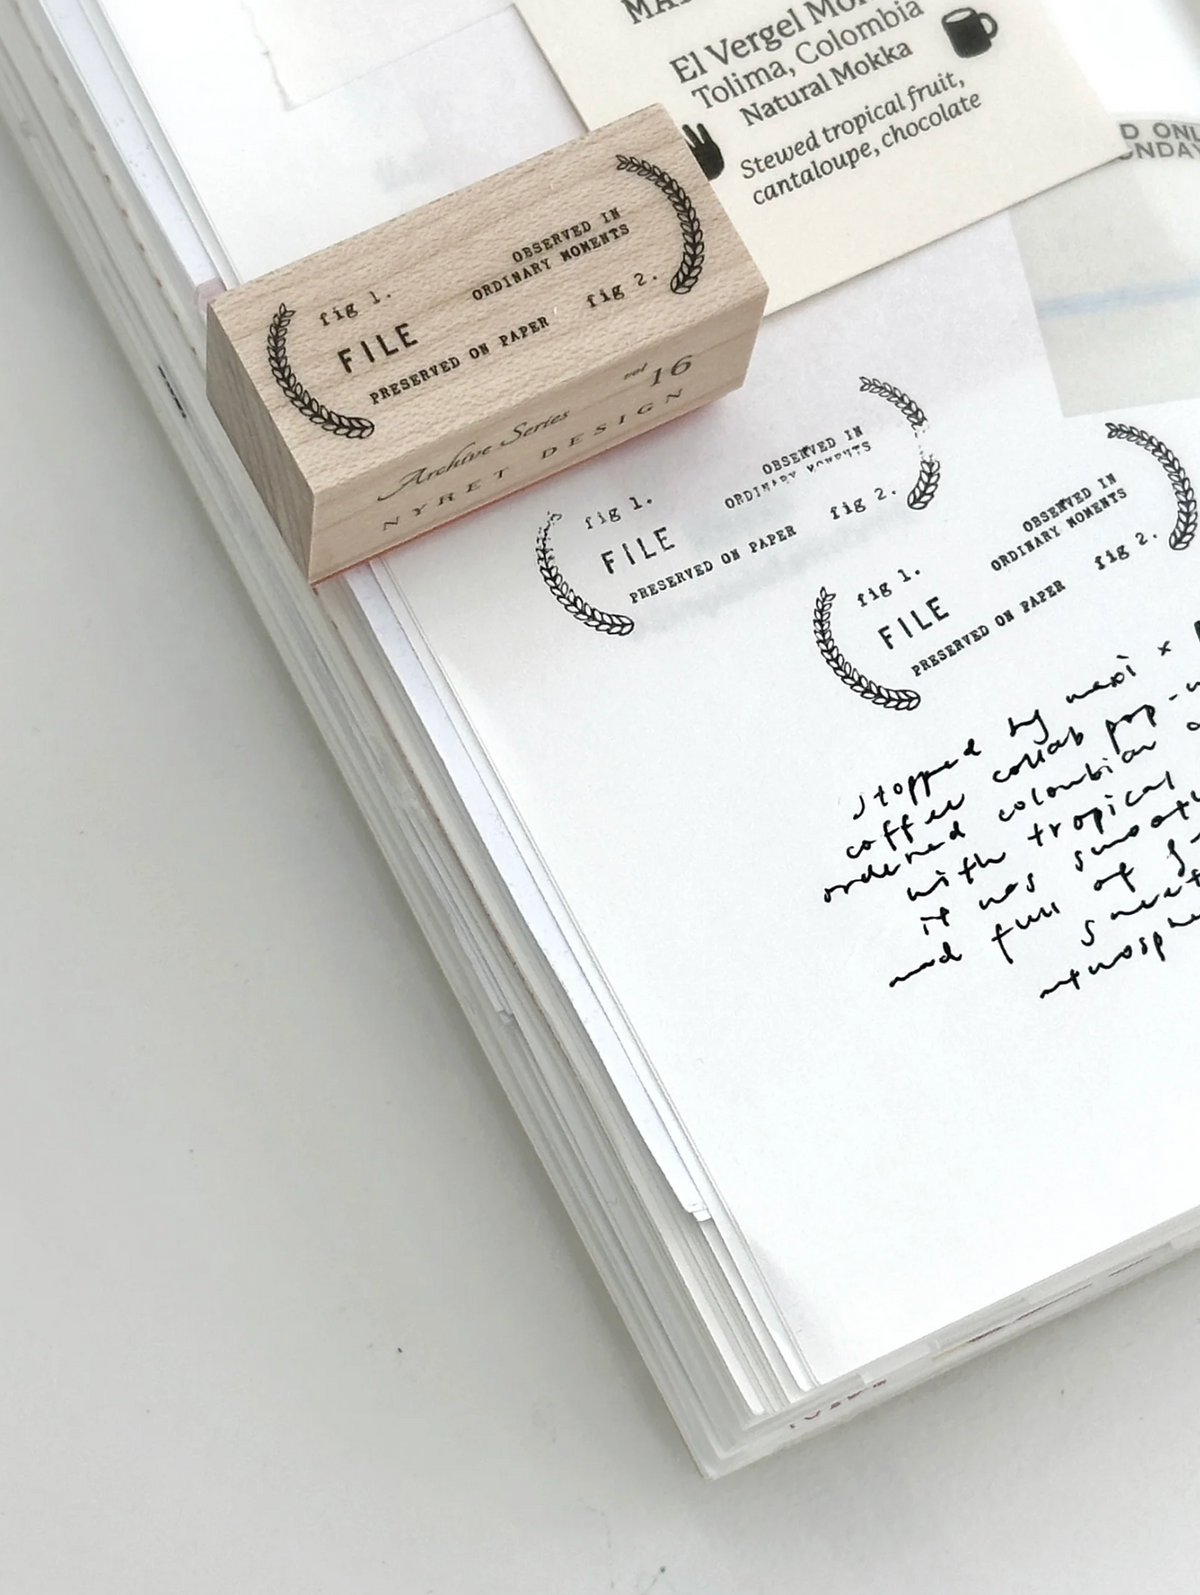 El Vergel
Tolima, Colombia
Natural Mokka
Stewed tropical fruit,
cantaloupe, chocolate
OBSERVED IN
ORDINARY MOMENTS
fig 1.
fig 2.
FILE
PRESERVED ON PAPER
vol 16
Archive Series
NYRET DESIGN
OBSERVED IN
ORDINARY MOMENTS
fig 1.
fig 2.
FILE
PRESERVED ON PAPER
OBSERVED IN
ORDINARY MOMENTS
fig 1.
fig 2.
FILE
PRESERVED ON PAPER
stopped by x
coffee collab
ordered colombian
with tropical
it was
and full of